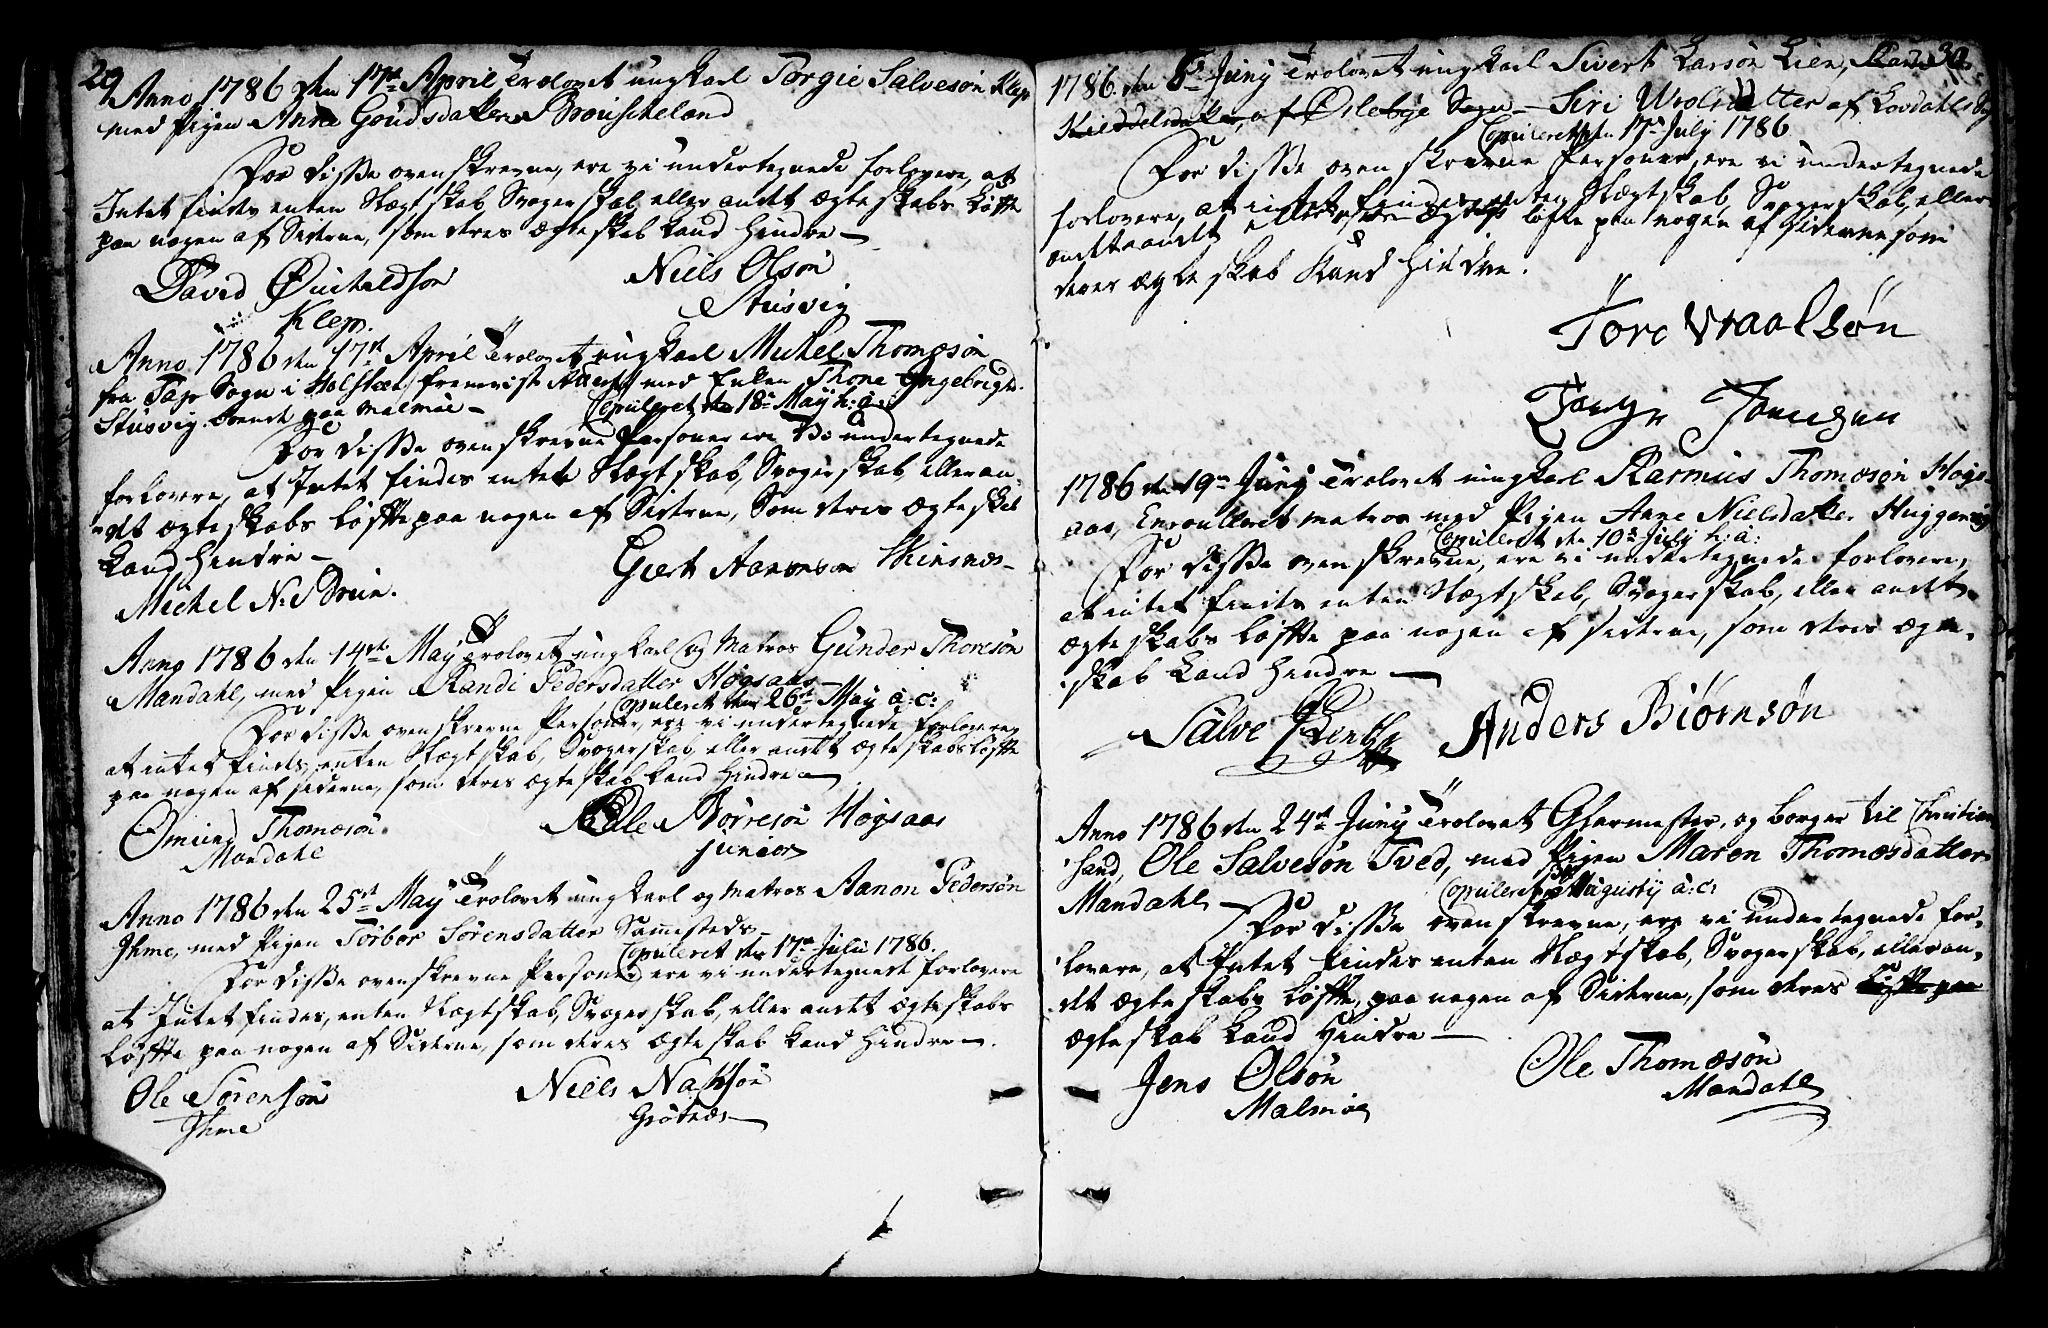 29
Anno 1786 den 17de April Trolovet ungkarl Torgie Salvesøn Klep
med Pigen Anne Goudsdatter
For disse ovenskrevne, ere vi undertegnede forlovere, at
Intet findes enten Slægtskab Svogerskab eller andet ægteskabs Løfte
paa nogen af Siderne, som deres Ægteskab kand hindre
David Klep.
Niels Olsøn
Stusvig
Anno 1786 den 17de April Trolovet ungkarl Michel Thomesøn
fra Sogn i Holsteen med Enken Thone Ingebrigts.
Stusvig boende paa Malmøe
Copuleret den 18de May h: a:
For disse ovenskrevne Personer ere Vi undertegnede
forlovere, at Intet findes enten Slægtskab, Svogerskab, eller an-
det ægteskabs Løfte paa nogen af Siderne, Som deres Ægteskab
kand hindre
Michel N: Bruin.
Giert Aanonsen Skinsnæs
Anno 1786 den 14de May Trolovet ungkarl og Matros Gunder Thoresøn
Mandahl, med Pigen Randi Pedersdatter Høgsaas
Copuleret den 26de May a: c:
For disse ovenskrevne Personer, ere vi undertegnede forlovere,
at intet findes, enten Slægtskab, Svogerskab eller andet ægteskabs løfte
paa nogen af siderne, som deres ægteskab kand hindre
Omund Thomesøn
Mandahl
Salle Børresøn Høgsaas
junior
Anno 1786 den 25de May Trolovet ungkarl og Matros Aanon Pedersøn
Ihme, med Pigen Torbor Sørensdatter Sammesteds
Copuleret den 17de Julii 1786.
For disse ovenskrevne Personer ere vi undertegnede forlovere
at Intet findes, enten Slægtskab, Svogerskab, eller andet ægteskabs
Løfte paa nogen af Siderne, som deres ægteskab kand hindre
Ole Sørensøn
Ihme
Niels
Grøtnæs
30
1786 den Juny Trolovet ungkarl Sivert Larsøn Lien,
af Øslebye Sogn Siri Wrolsdatter af Lovdahls
Copuleret den 17de July 1786
For disse ovenskrevne Personer, ere vi undertegnede
forlovere, at intet findes enten Slægtskab, Svogerskab, eller
Ægtsk løfte paa nogen af siderne som
deres ægteskab kand hindre.
Tore Wraalsøn
1786 den 19de Juny Trolovet ungkarl Rasmus Thomesøn Høgs-
aas, Enroulleret matros med Pigen Anne Nielsdatter
Copuleret den 10de July h: a:
For disse ovenskrevne, ere vi undertegnede forlovere,
at intet findes enten Slægtskab, Svogerskab, eller andet
ægteskabs løfte paa nogen af siderne, som deres ægte-
skab kand hindre
Salve
Anders Biørnsøn
Anno 1786 den 24de Juny Trolovet Glarmester, og borger til Christian
sand, Ole Salvesøn Tved, med Pigen Maren Thomesdatter
Mandahl
Copuleret Augustij a: c:
For disse ovenskrevne, ere vi undertegnede for-
lovere, at Intet findes enten Slægtskab, Svogerskab, eller an-
det ægteskabs løfte, paa nogen af Siderne, som deres Løfte paa
Ægteskab kand hindre
Jens Olsøn
Malmøe
Ole Thomesøn
Mandahl